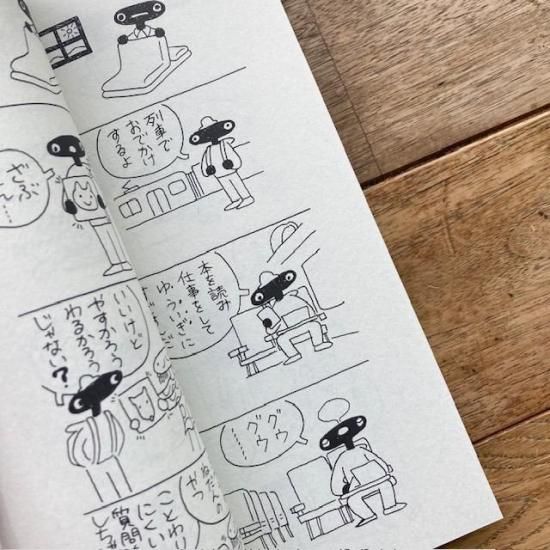 列車で
おでかけ
するよ
本を読み
仕事をして
ゆういぎに
グウ
グウ
……
ざぶ
いいけど
やすかろう
わるかろう
じゃない？
やつ
ことわり
にくい
質問